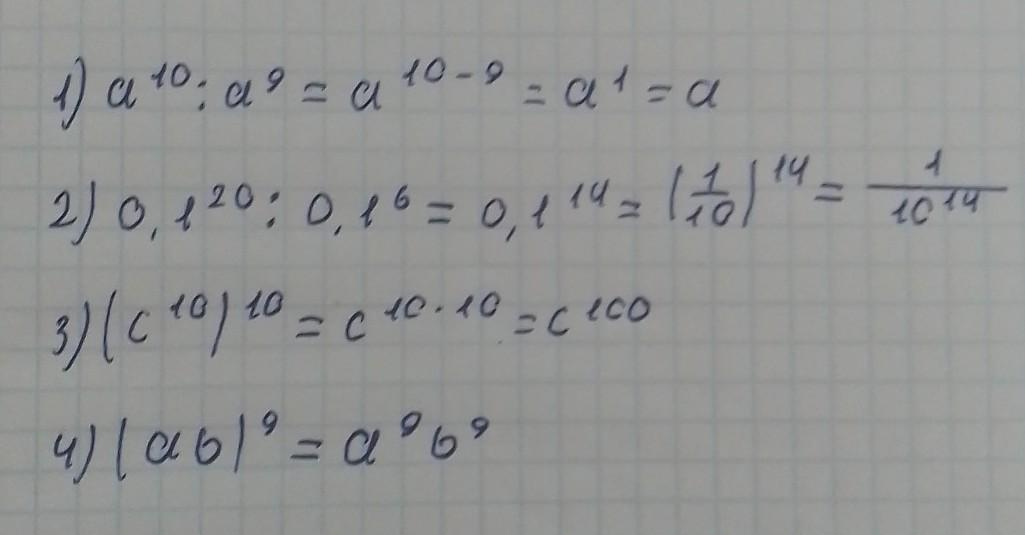 1) a¹⁰ : a⁹ = a¹⁰⁻⁹ = a¹ = a
2) 0,1²⁰ : 0,1⁶ = 0,1¹⁴ = (1/10)¹⁴ = 1/10¹⁴
3) (c¹⁰)¹⁰ = c¹⁰·¹⁰ = c¹⁰⁰
4) (ab)⁹ = a⁹b⁹